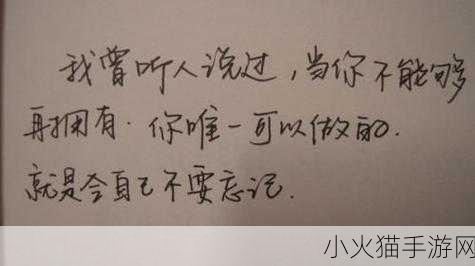 我曾听人说过,当你不能够
再拥有.你唯一可以做的.
就是令自己不要忘记.
小火猫手游网